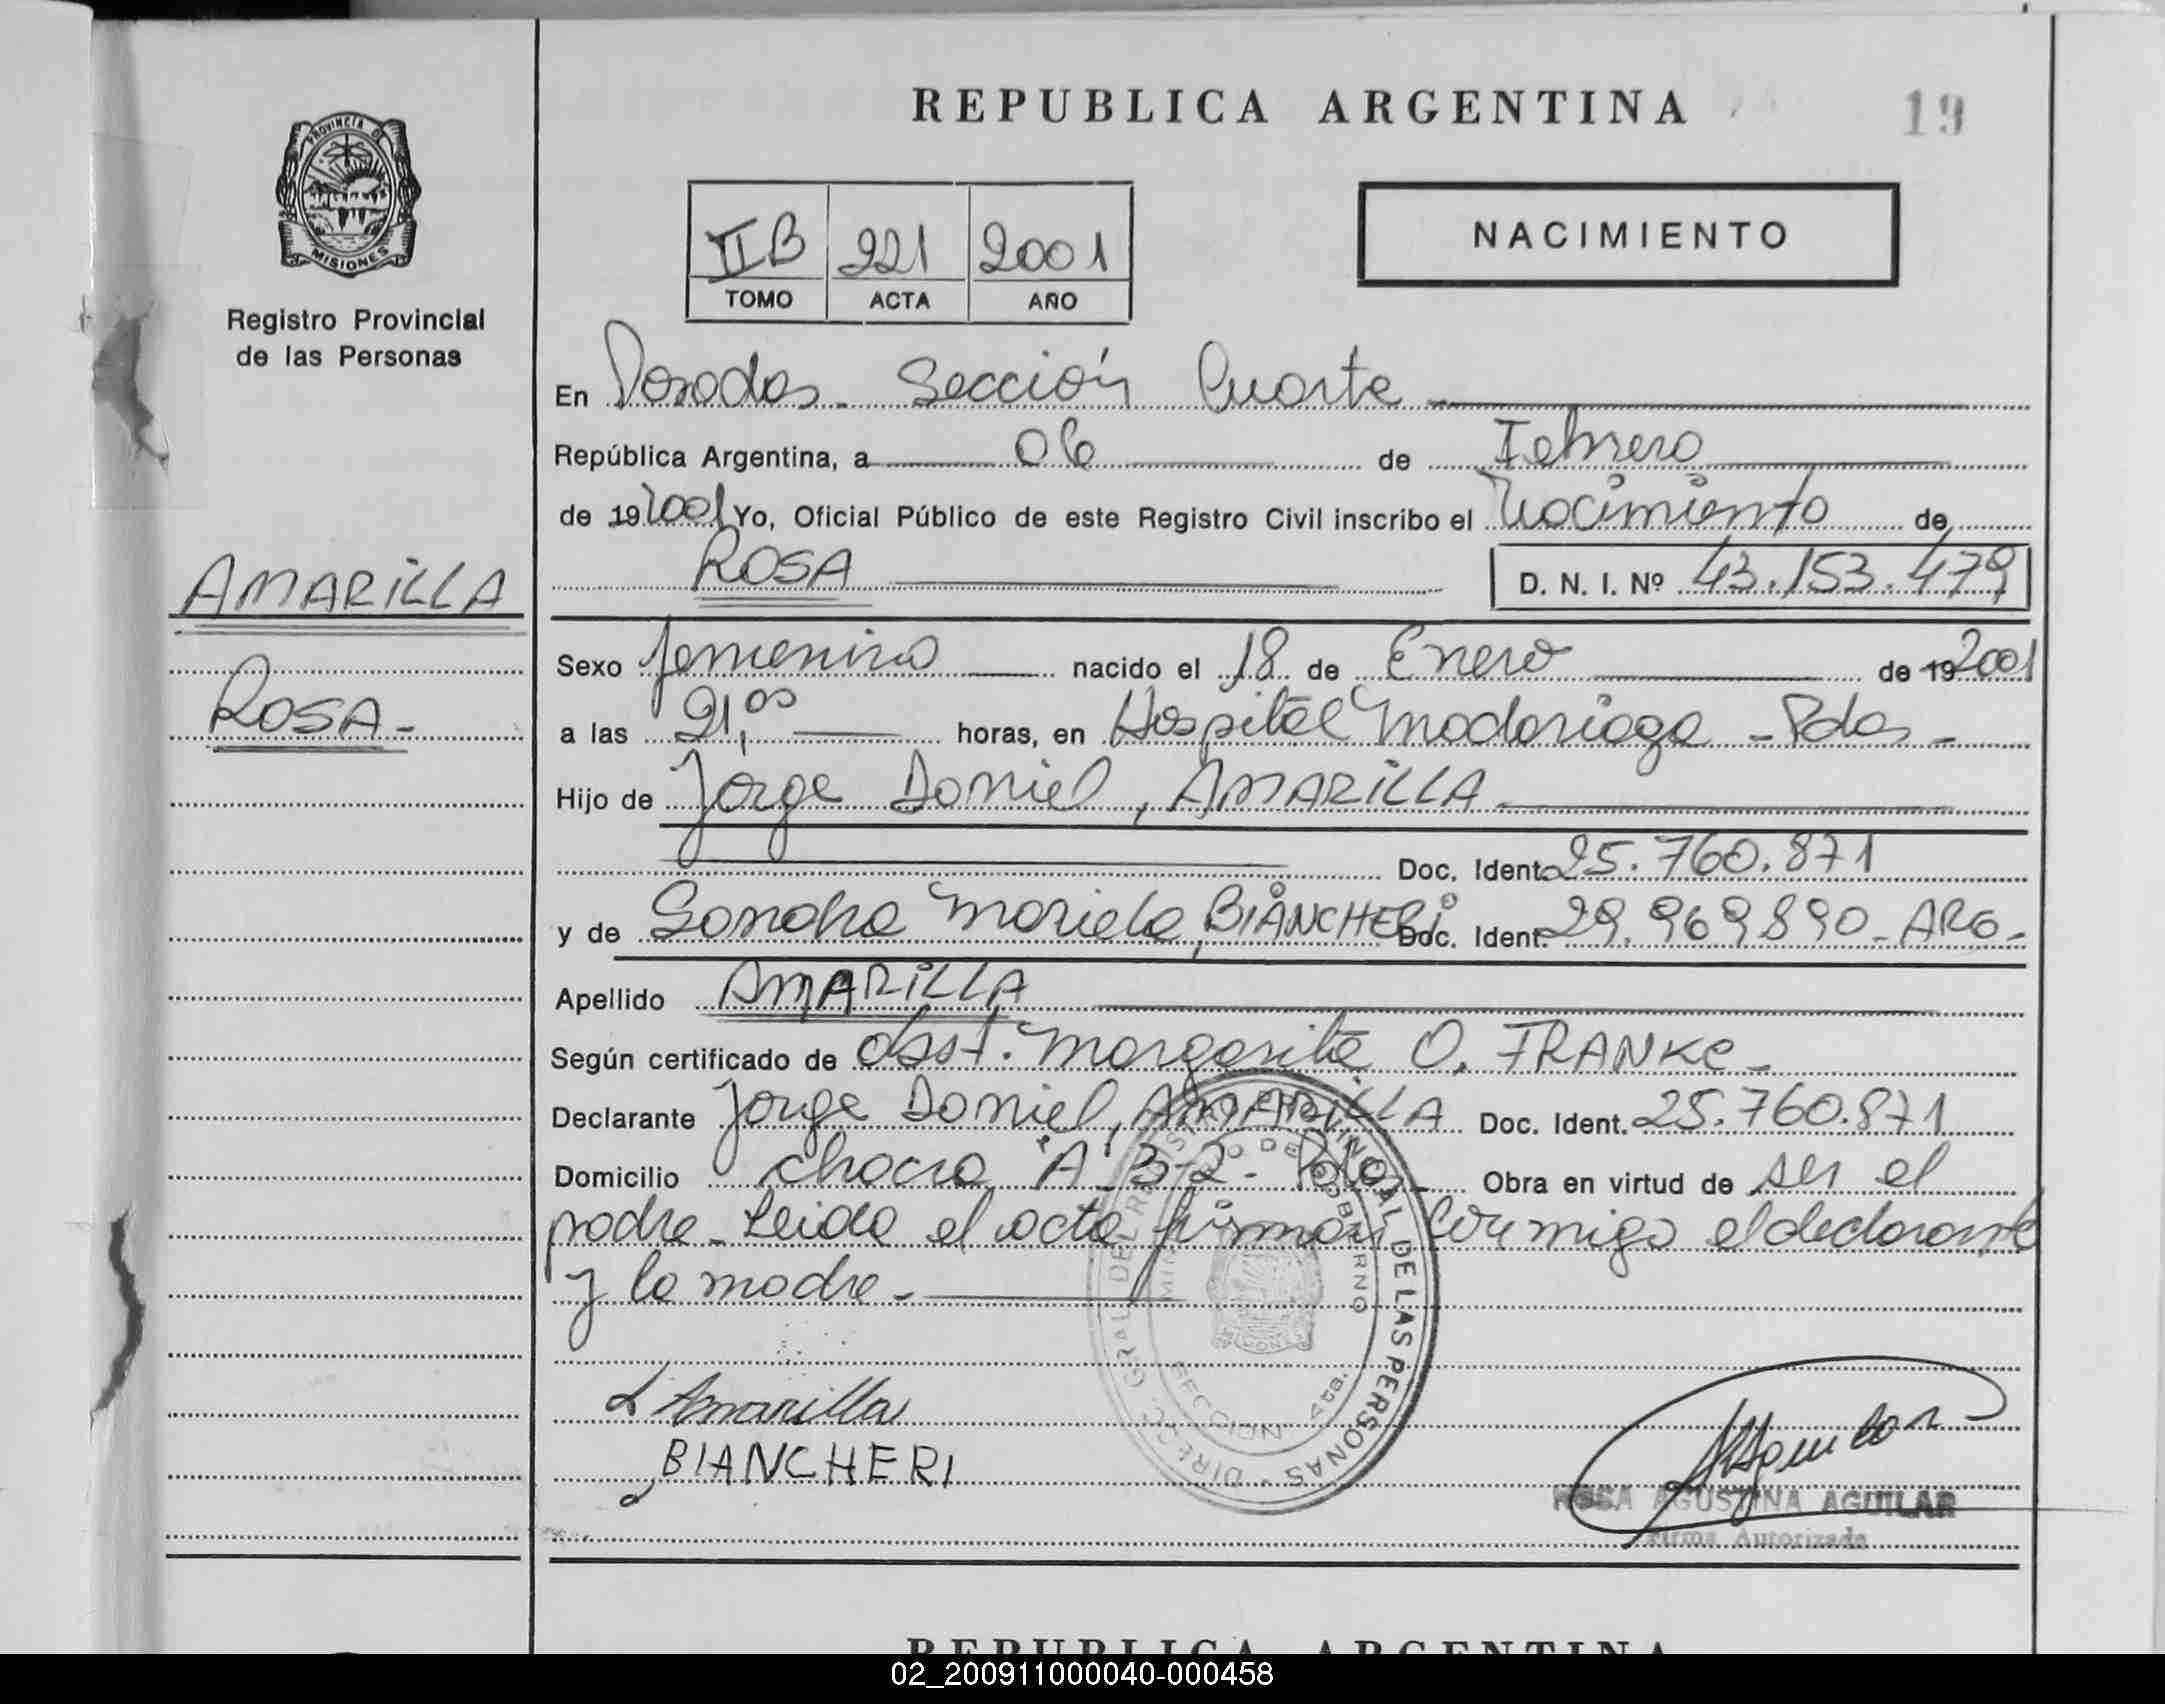 REPUBLICA ARGENTINA
19
PROVINCIA DE
MISIONES
Registro Provincial
de las Personas
II B 221 2001
TOMO ACTA AÑO
NACIMIENTO
En Posadas - Sección Cuarta
República Argentina, a 06 de Febrero
de 19 2001 Yo, Oficial Público de este Registro Civil inscribo el Nacimiento de
ROSA D. N. I. Nº 43.153.479
AMARILLA
ROSA -
Sexo femenino nacido el 18 de Enero de 19 2001
a las 21,00 horas, en Hospital Madariaga - Pdas -
Hijo de Jorge Daniel, AMARILLA
Doc. Ident. 25.760.871
y de Sandra Mariela, BIANCHERI Doc. Ident. 29.969890 - ARG -
Apellido AMARILLA
Según certificado de obst. Margarita O. FRANKE -
Declarante Jorge Daniel, AMARILLA Doc. Ident. 25.760.871
Domicilio chacra "A" 3-2 - Pdas - Obra en virtud de ser el
padre - Leida el acta firman conmigo el declarante
y la madre -
DIRECC. GRAL. DEL REGISTRO PROVINCIAL DE LAS PERSONAS
MINISTERIO DE GOBIERNO
SECCION 4ta.
Amarilla
BIANCHERI
Aguilar
ROSA AGUSTINA AGUILAR
Firma Autorizada
REPUBLICA ARGENTINA
02_200911000040-000458